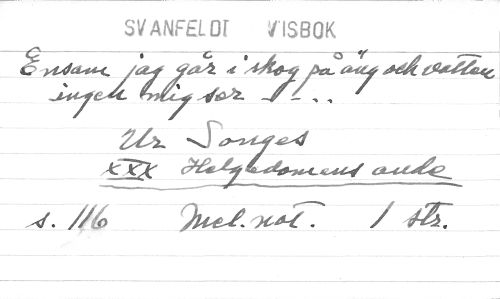 SVANFELDT VISBOK
Ensam jag går i skog på äng och vatten
ingen mig ser - - . .
Ur Songes
XXX Helgedomens ande
s. 116 Mel. not. 1 str.